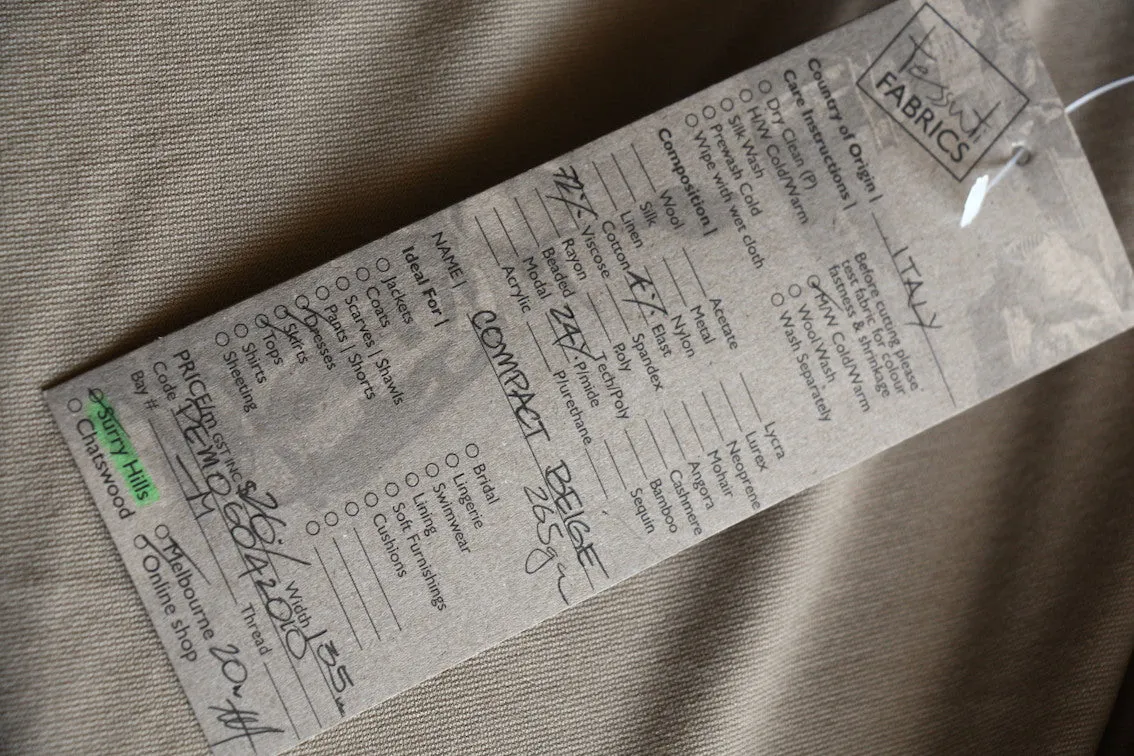 Tessuti
FABRICS
Country of Origin | ITALY
Care Instructions |
Before cutting please
test fabric for colour
fastness & shrinkage
Dry Clean (P)
H/W Cold/Warm
Silk Wash
Prewash Cold
Wipe with wet cloth
M/W Cold/Warm
Wool Wash
Wash Separately
Composition |
Wool Acetate Lycra
Silk Metal Lurex
Linen Nylon Neoprene
Cotton 4% Elast Mohair
72% Viscose Spandex Angora
Rayon Poly Cashmere
Beaded Tech/Poly Bamboo
Modal 24% P/mide Sequin
Acrylic P/urethane
NAME | COMPACT BEIGE
265gm
Ideal For |
Jackets Bridal
Coats Lingerie
Scarves | Shawls Swimwear
Pants | Shorts Lining
Dresses Soft Furnishings
Skirts Cushions
Tops
Shirts
Sheeting
PRICE/m GST INC $26/ Width 135cm
Code
Bay # M Thread
Surry Hills Melbourne 20m
Chatswood Online shop